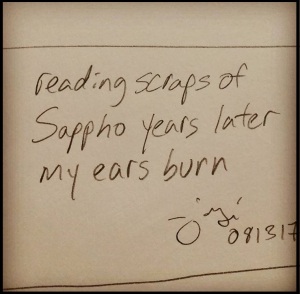 reading scraps of
Sappho years later
my ears burn
081317